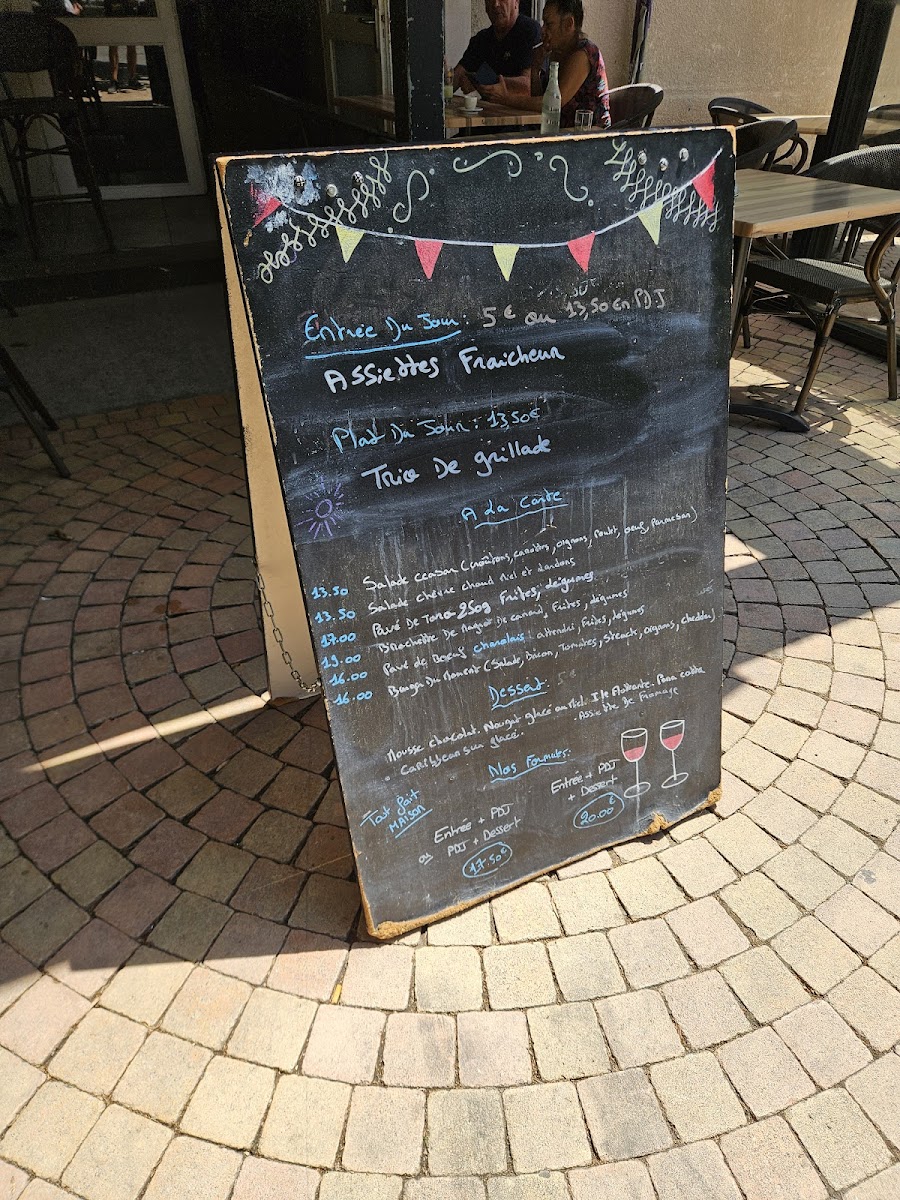 Entrée Du Jour : 5€ ou 13,50 en PDJ
Assiettes Fraicheur
Plat Du Jour : 13,50€
Trio De grillade
A La Carte
13.50 Salade ceasar (croûtons, carottes, oignons, Poulet, oeuf, Parmesan)
13.50 Salade chèvre chaud miel et lardons
17.00 Pavé De 250g Frites, légumes
19.00 Brochette De Magret De canard, Frites, légumes
16.00 Pavé de Boeuf charolais : attendri, Frites, légumes
16.00 Burger Du Moment (Salade, Bacon, Tomates, Steack, oignons, cheddar)
Dessert : 5€
Mousse chocolat. Nougat glacé au miel. Ile flottante. Pana cotta
Caribbean sun glacé. Assiette De Fromage
Nos Formules:
Tout fait
MAISON
Entrée + PDJ
ou PDJ + Dessert
17.50€
Entrée + PDJ
+ Dessert
20.00€